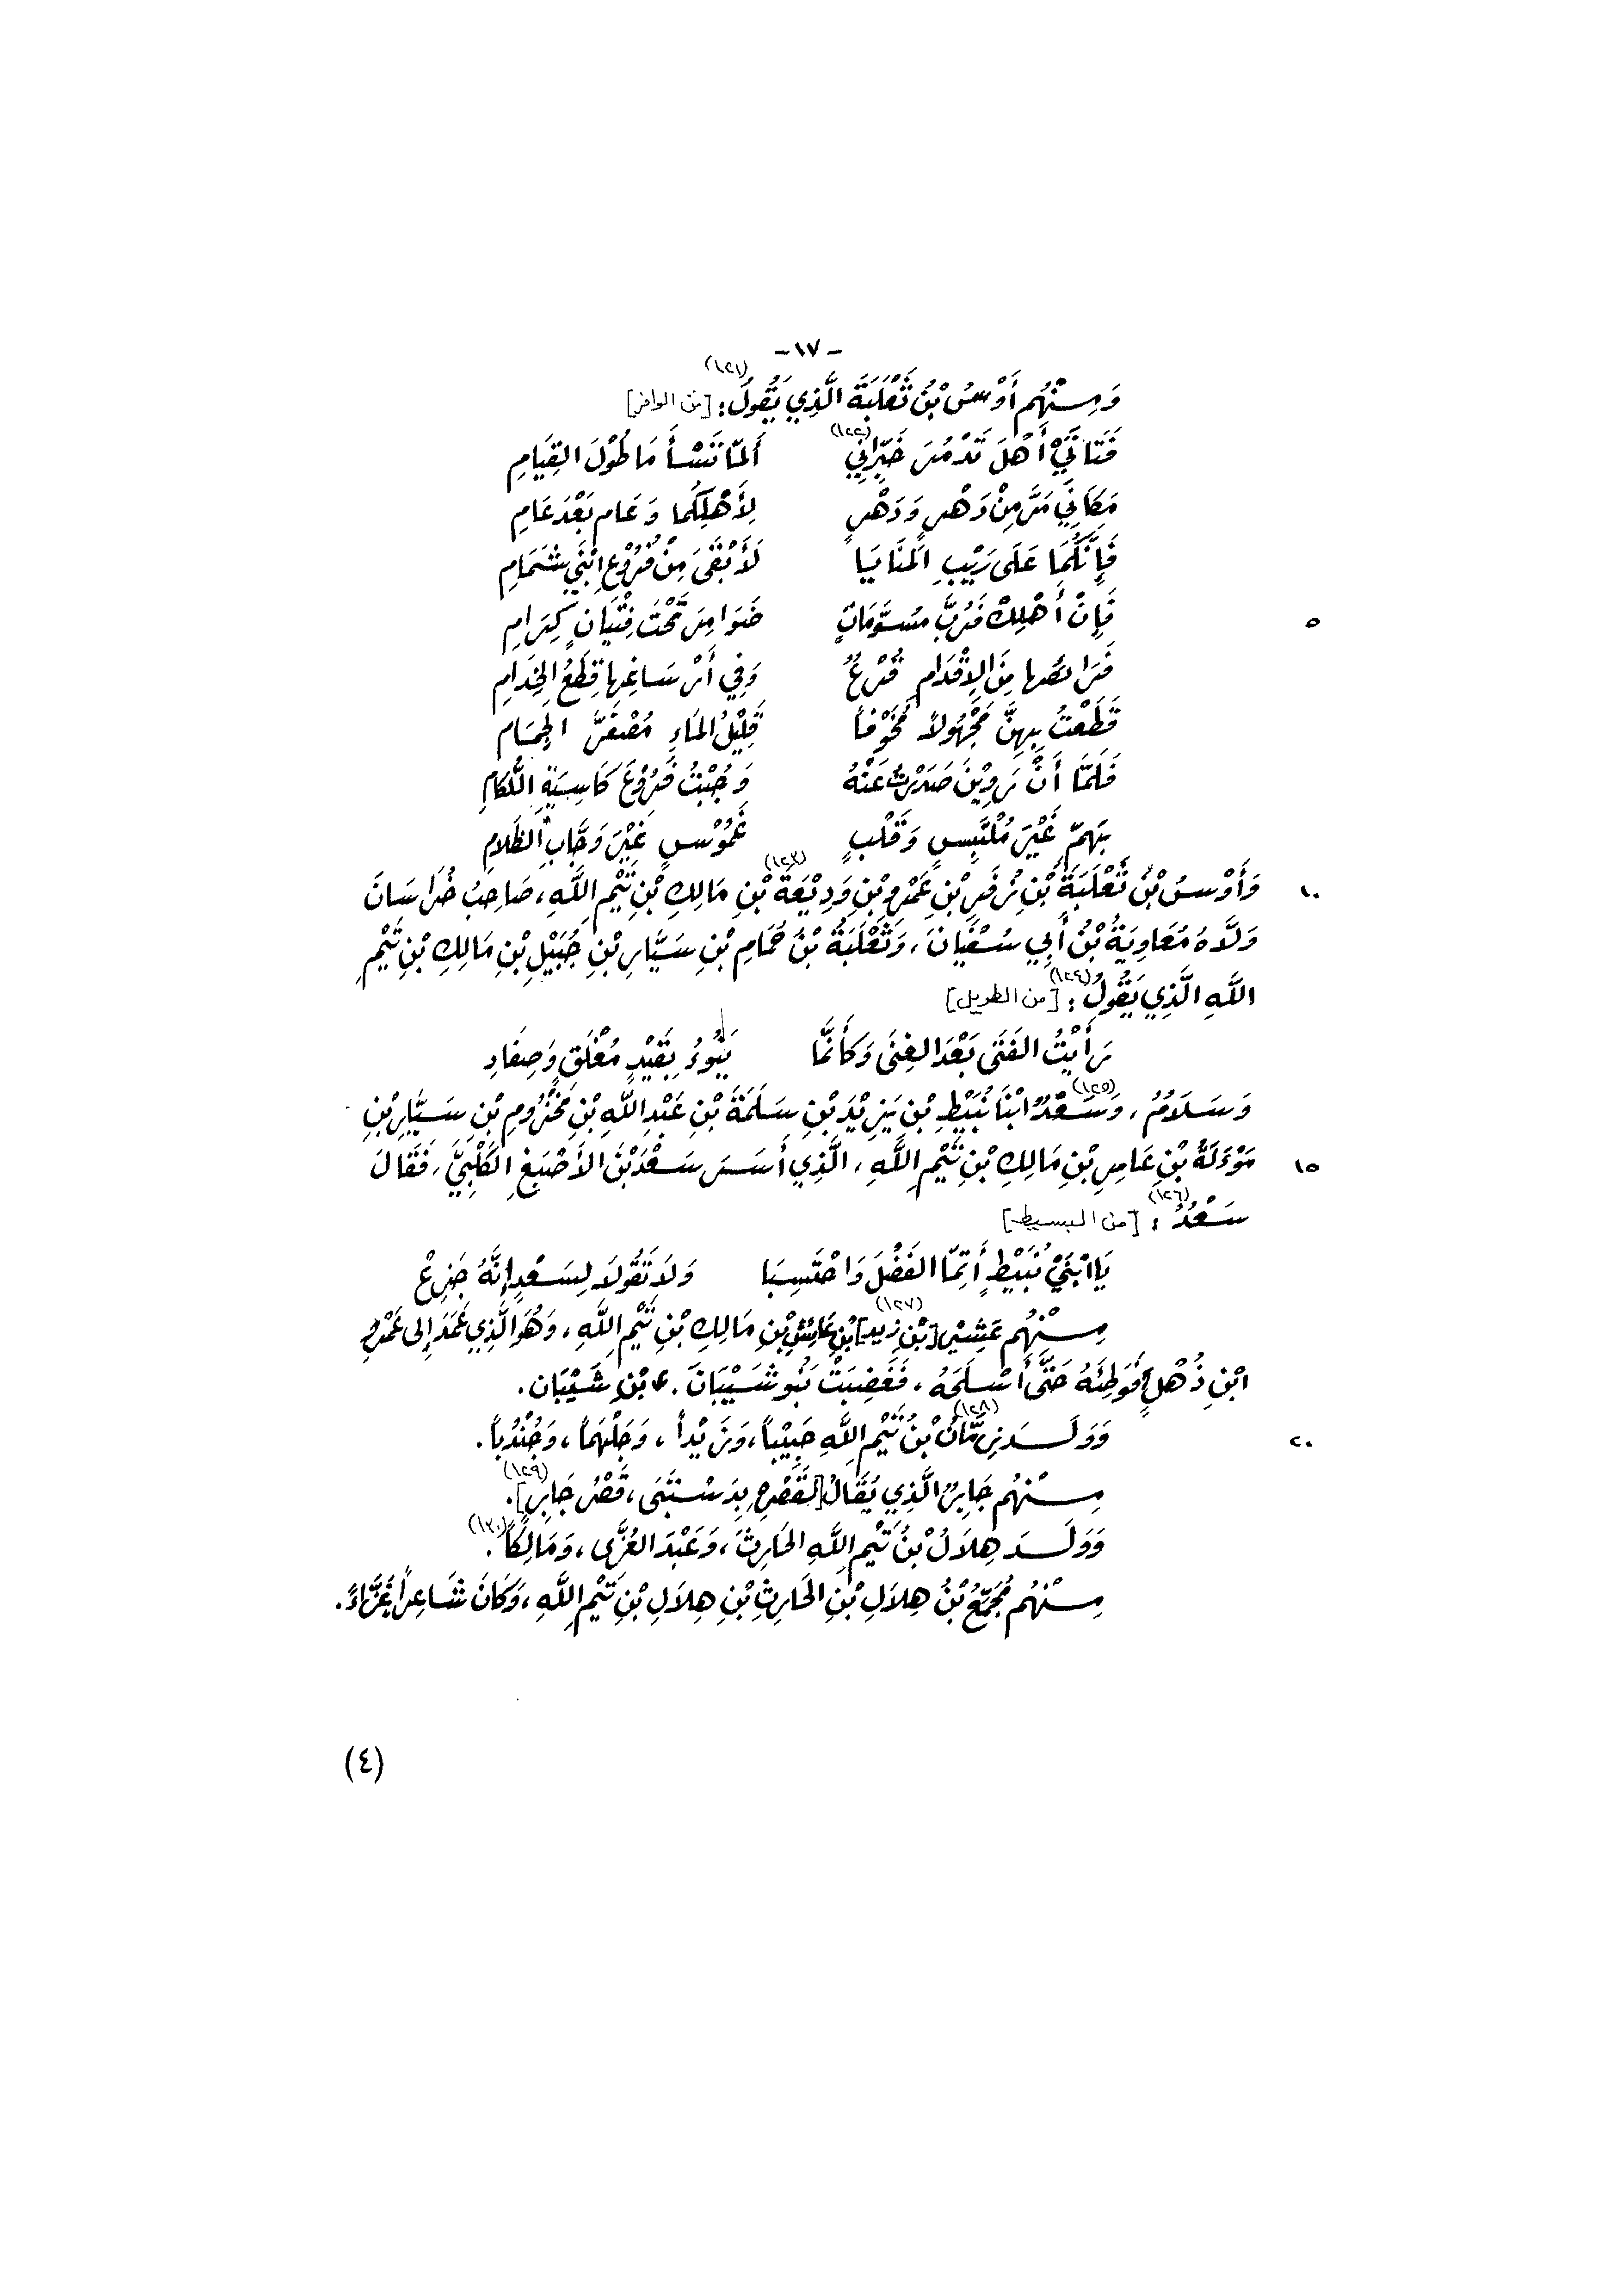 -١٧-
وَمِنْهُم أَوْسُ بْنُ ثَعْلَبَةَ الَّذِي يَقُولُ(١٢١): [من الوافر]
فَتَاتَيْ أَهْلَ تَدْمُرَ خَبِّرَانِي(١٢٢) أَلَمَّا تَسْأَمَا طُوْلَ القِيَامِ
مَكَانِي مَرَّ مِنْ دَهْرٍ وَدَهْرٍ لِأَهْلِكُمَا وَعَامٍ بَعْدَ عَامِ
فَإِنَّكُمَا عَلَى رَيْبِ المَنَايَا لَأَبْقَى مِنْ فُرُوْعِ ابْنَي شَمَامِ
فَإِنْ أَهْلِكْ فَرُبَّ مُسَوَّمَاتٍ ضَوَامِرَ تَحْتَ فِتْيَانٍ كِرَامِ ٥
فَرَائصُها مِنَ الإِقْدَامِ قُرْعٌ وَفِي أَرْسَاغِهِا قِطَعُ الخِدَامِ
قَطَعْتُ بِهِنَّ مَجْهُولاً مَخُوْفاً قَلِيْلُ المَاءِ مُصْفَرَّ الجِمَامِ
فَلَمَّا أَنْ رَوِيْنَ صَدَرْتُ عَنْهُ وَجُبْتُ فُرُوْعَ كَاسِيَةِ اللُّكَامِ
بِهَمّ غَيْرَ مُلْتَبِسٍ وَقَلْبٍ غَمُوْسٍ غَيْرَ وَجَّابِ الظَلامِ
وَأَوْسُ بْنُ ثَعْلَبَةَ بْنِ زُفَرِ بْنِ عَمْرِو بْنِ وَدِيْعَةَ(١٢٣) بْنِ مَالِكِ بْنِ تَيْمِ اللَّهِ، صَاحِبُ خُرَاسَانَ ١٠
وَلَّاهُ مُعَاوِيَةُ بْنُ أَبِي سُفْيَانَ، وَثَعْلَبَةُ بْنُ حُمَامِ بْنِ سَيَّارِ بْنِ جُبَيْلِ بْنِ مَالِكِ بْنِ تَيْمِ
اللَّهِ الَّذِي يَقُولُ(١٢٤): [من الطويل]
رَأَيْتُ الفَتَى بَعْدَ الغِنَى وَكَأَنَّمَا يَنُوءُ بِقَيْدٍ مُغْلَقٍ وَصِفَادِ
وَسَلَامُ، وَسَعْدُ(١٢٥) ابْنَا نُبَيْطِ بْنِ يَزِيْدَ بْنِ سَلَمَةَ بْنِ عَبْدِ اللَّهِ بْنِ مَخْزُومِ بْنِ سَيَّارِ بْنِ
مَوْءَلَةَ بْنِ عَامِرِ بْنِ مَالِكِ بْنِ تَيْمِ اللَّهِ، الَّذِي أَسَرَ سَعْدَ بْنَ الأَصْبَغِ الكَلْبِيَّ، فَقَالَ ١٥
سَعْدُ(١٢٦): [من البسيط]
يَا ابْنَيْ نُبَيْطٍ أَتِمَّا الفَضْلَ وَاحْتَسِبَا وَلَا تَقُولَا لِسَعْدٍ إِنَّهُ جَزِعْ
مِنْهُم [بْنِ زيد](١٢٧) بْنِ عَائِشِ بْنِ مَالِكِ بْنِ تَيْمِ اللَّهِ، وَهُوَ الَّذِي عَمَدَ إِلَى عَمْرِو
ابْنِ ذُهْلٍ فَوَطِئَهُ حَتَّى أَسْلَحَهُ، فَغَضِبَتْ بَنُو شَيْبَانَ. بْنِ شَيْبَان.
وَوَلَدَ زِمَّانُ(١٢٨) بْنُ تَيْمِ اللَّهِ حَبِيْباً، وَزَيْداً، وَجَلْهَمَاً، وَجُنْدُباً. ٢٠
مِنْهُم جَابِرٌ الَّذِي يُقَالُ [لقَصْرِهِ بِدَسْتَبَى، قَصْرُ جَابِرٍ](١٢٩).
وَوَلَدَ هِلَالُ بْنُ تَيْمِ اللَّهِ الحَارِثَ، وَعَبْدَ العُزَّى، وَمَالِكَاً(١٣٠).
مِنْهُم مُجَمِّعُ بْنُ هِلَالِ بْنِ الحَارِثِ بْنِ هِلَالِ بْنِ تَيْمِ اللَّهِ، وَكَانَ شَاعِراً غَزَّاءً.
(٤)